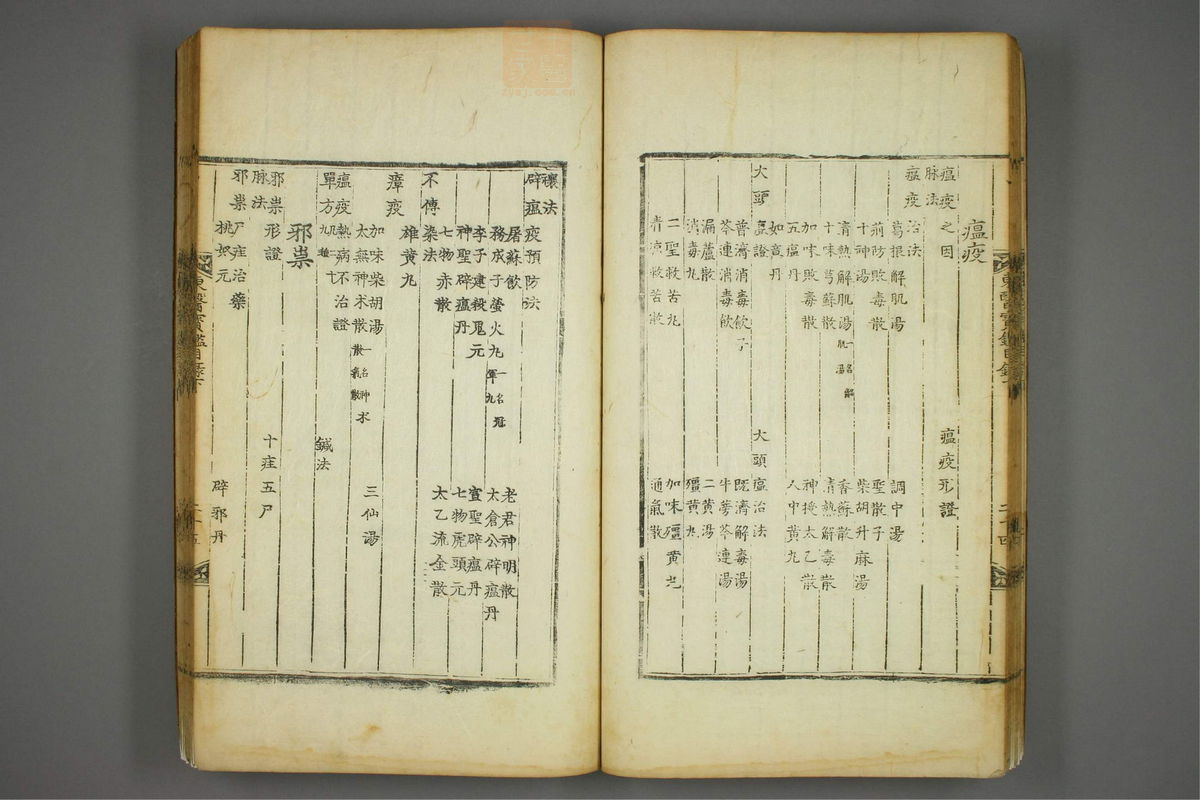 瘟疫
瘟疫之因 瘟疫形證
脉法
瘟疫治法
葛根解肌湯 調中湯
荊防敗毒散 聖散子
十神湯 柴胡升麻湯
清熱解肌湯一名解肌湯 香蘇散
十味芎蘇散 清熱解毒散
加味敗毒散 神授太乙散
五瘟丹 人中黄丸
如意丹
大頭瘟證 大頭瘟治法
普濟消毒飲子 既濟解毒湯
芩連消毒飲 牛蒡芩連湯
漏蘆散 二黄湯
消毒丸 殭黄丸
二聖救苦丸 加味殭黄丸
清凉救苦散 通氣散
東醫寶鑑目錄下
禳法
辟瘟疫預防法
屠蘇飲 老君神明散
務成子螢火丸一名冠軍丸 太倉公辟瘟丹
李子建殺鬼元 宣聖辟瘟丹
神聖辟瘟丹 七物虎頭元
七物赤散 太乙流金散
不傳染法
雄黄丸
瘴疫
加味柴胡湯 三仙湯
太無神术散一名神术散氣散
瘟疫熱病不治證 鍼法
單方
邪祟
邪祟形證 十疰五尸
脉法
邪祟尸疰治藥
桃奴元 辟邪丹
東醫寶鑑目錄下